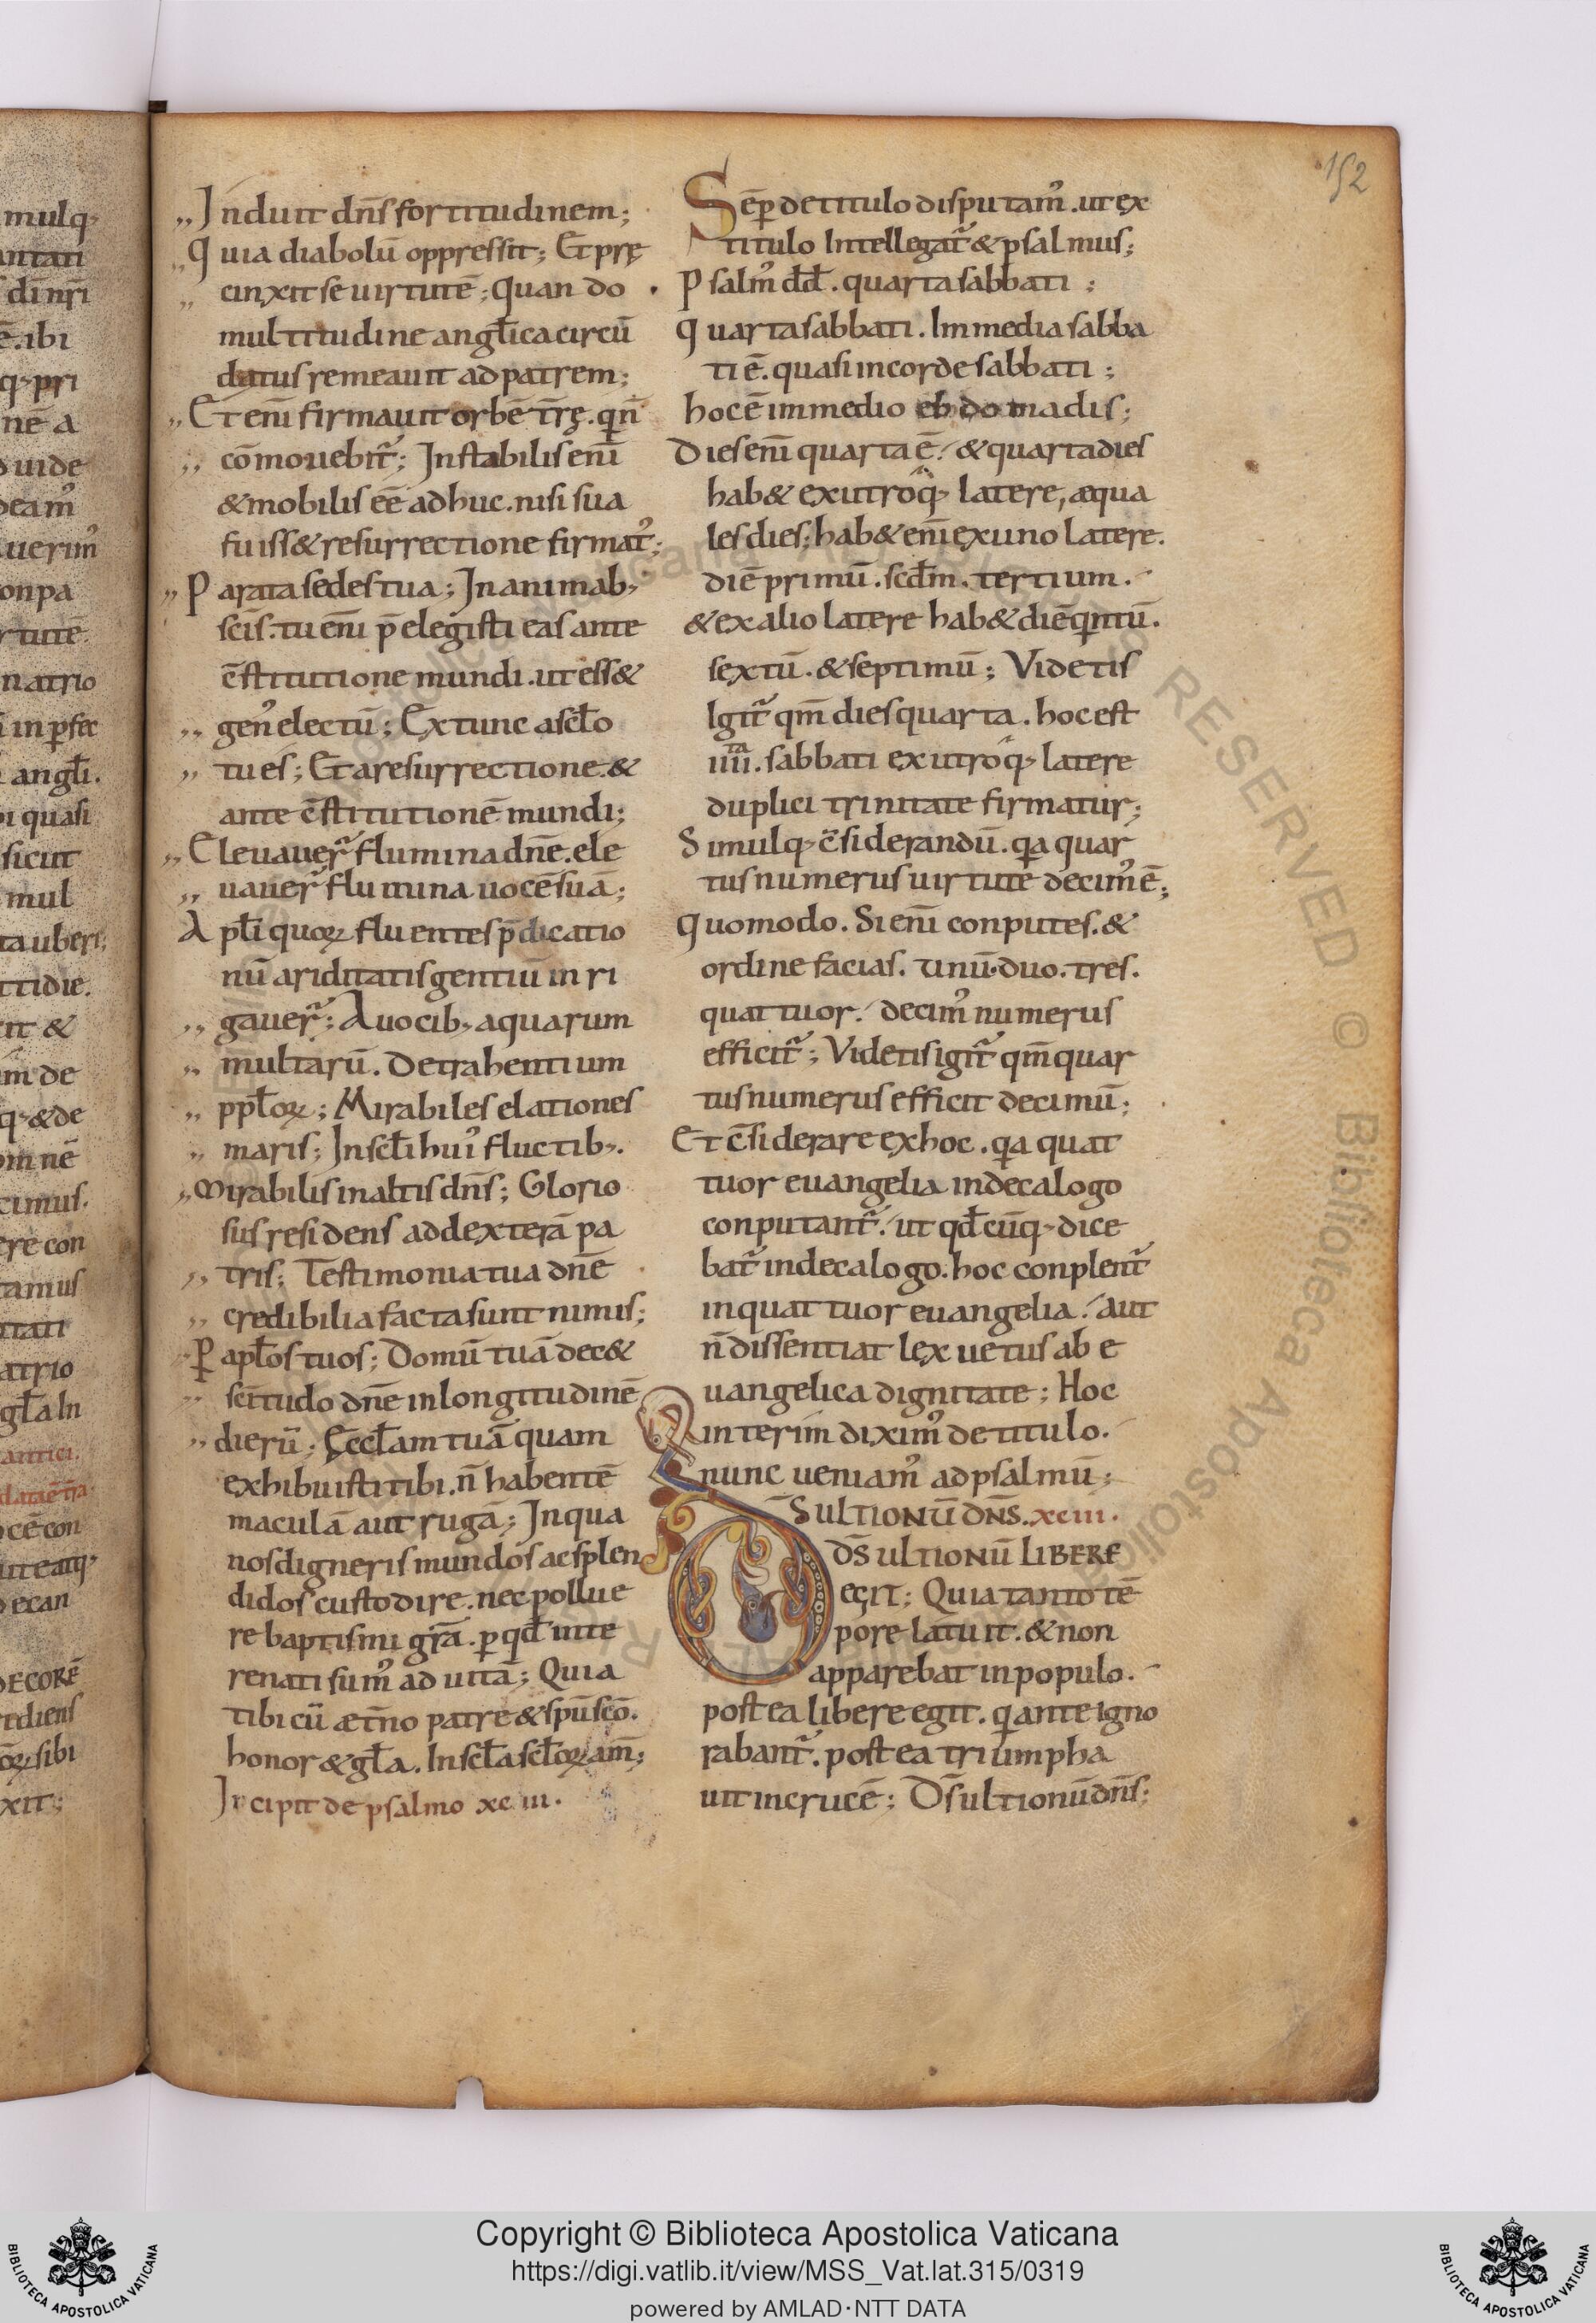 152
Induit dn̄s fortitudinem;
Quia diabolū oppressit; Et prę
cinxit se uirtutē; Quando
multitudine angl̄ica circū
datus remeauit ad patrem;
Et enī firmauit orbē tr̄ę. qn̄
cōmouebit᷑; Instabilis enī
& mobilis eē adhuc. nisi sua
fuiss& resurrectione firmat᷒;
Parata sedes tua; In animab;
scīs. tu enī p̄elegisti eas ante
c̄stitutione mundi. ut ess&
gen᷒ electū; Ex tunc a scl̄o
tu es; Et a resurrectione. &
ante c̄stitutionē mundi;
Eleuauer᷑ flumina dnē. ele
uauer᷑ flumina uocē suā;
Apl̄i quoꝝ fluentes p̄dicatio
nū ariditatis gentiū inri
gauer᷑; A uocib; aquarum
multarū. Detrahentium
ppl̄oꝝ; Mirabiles elationes
maris; In scl̄i hui᷒ fluctib;.
Mirabilis in altis dn̄s; Glorio
sus residens ad dexterā pa
tris; Testimonia tua dnē
credibilia facta sunt nimis;
P̲ apl̄os tuos; Domū tuā dec&
scītudo dnē in longitudinē
dierū; Ęccl̄am tuā quam
exhibuisti tibi. n̄ habentē
maculā aut rugā; In qua
nos digneris mundos ac splen
didos custodire. nec pollue
re baptismi gr̄ā. ꝑ qd̄ in te
renati sum᷒ ad uitā; Quia
tibi cū æt̄no patre & spū scō.
honor & gl̄a. In scl̄a scl̄oꝝ am̄;
Incipit de psalmo xciii.
Sēꝑ de titulo disputam᷒. ut ex
titulo Intellegat᷑ & psalmus;
Psalm᷒ dd̄. quarta sabbati;
Quarta sabbati. Im media sabba
ti ē. quasi in corde sabbati;
hoc ē im medio ebdomadis;
Dies enī quarta ē. & quarta dies
hab& ex utroq; latere, æqua
les dies; hab& enī ex uno latere.
diē primū. scd̄m. tertium.
& ex alio latere hab& diē qi̅ntū.
sextū. & septimū; Videtis
Igit᷑ qm̄ dies quarta. hoc est
iiii.ta sabbati ex utroq; latere
duplici trinitate firmatur;
Simulq; c̄siderandū. qa quar
tus numerus uirtute decim᷒ ē;
Quomodo. Si enī conputes. &
ordine facias. unū. duo. tres.
quattuor. decim᷒ numerus
efficit᷑; Videtis igit᷑ qm̄ quar
tus numerus efficit decimū;
Et c̄siderare ex hoc. qa quat
tuor euangelia in decalogo
conputant᷑. ut qd̄cūq; dice
bat᷑ in decalogo. hoc conplent᷑
in quattuor euangelia. Aut
n̄ dissentiat lex uetus ab e
uangelica dignitate; Hoc
interim dixim᷒ de titulo.
nunc ueniam᷒ ad psalmū;
D̄S ULTIONŪ DN̄S. xciii.
DS̄ ULTIONŪ LIBERE
egit; Quia tanto tē
pore latuit. & non
apparebat in populo.
postea libere egit. qi ante igno
rabant᷑. postea triumpha
uit in crucē; Ds̄ ultionū dn̄s;
BIBLIOTECA APOSTOLICA VATICANA
Copyright © Biblioteca Apostolica Vaticana
https://digi.vatlib.it/view/MSS_Vat.lat.315/0319
powered by AMLAD·NTT DATA
BIBLIOTECA APOSTOLICA VATICANA